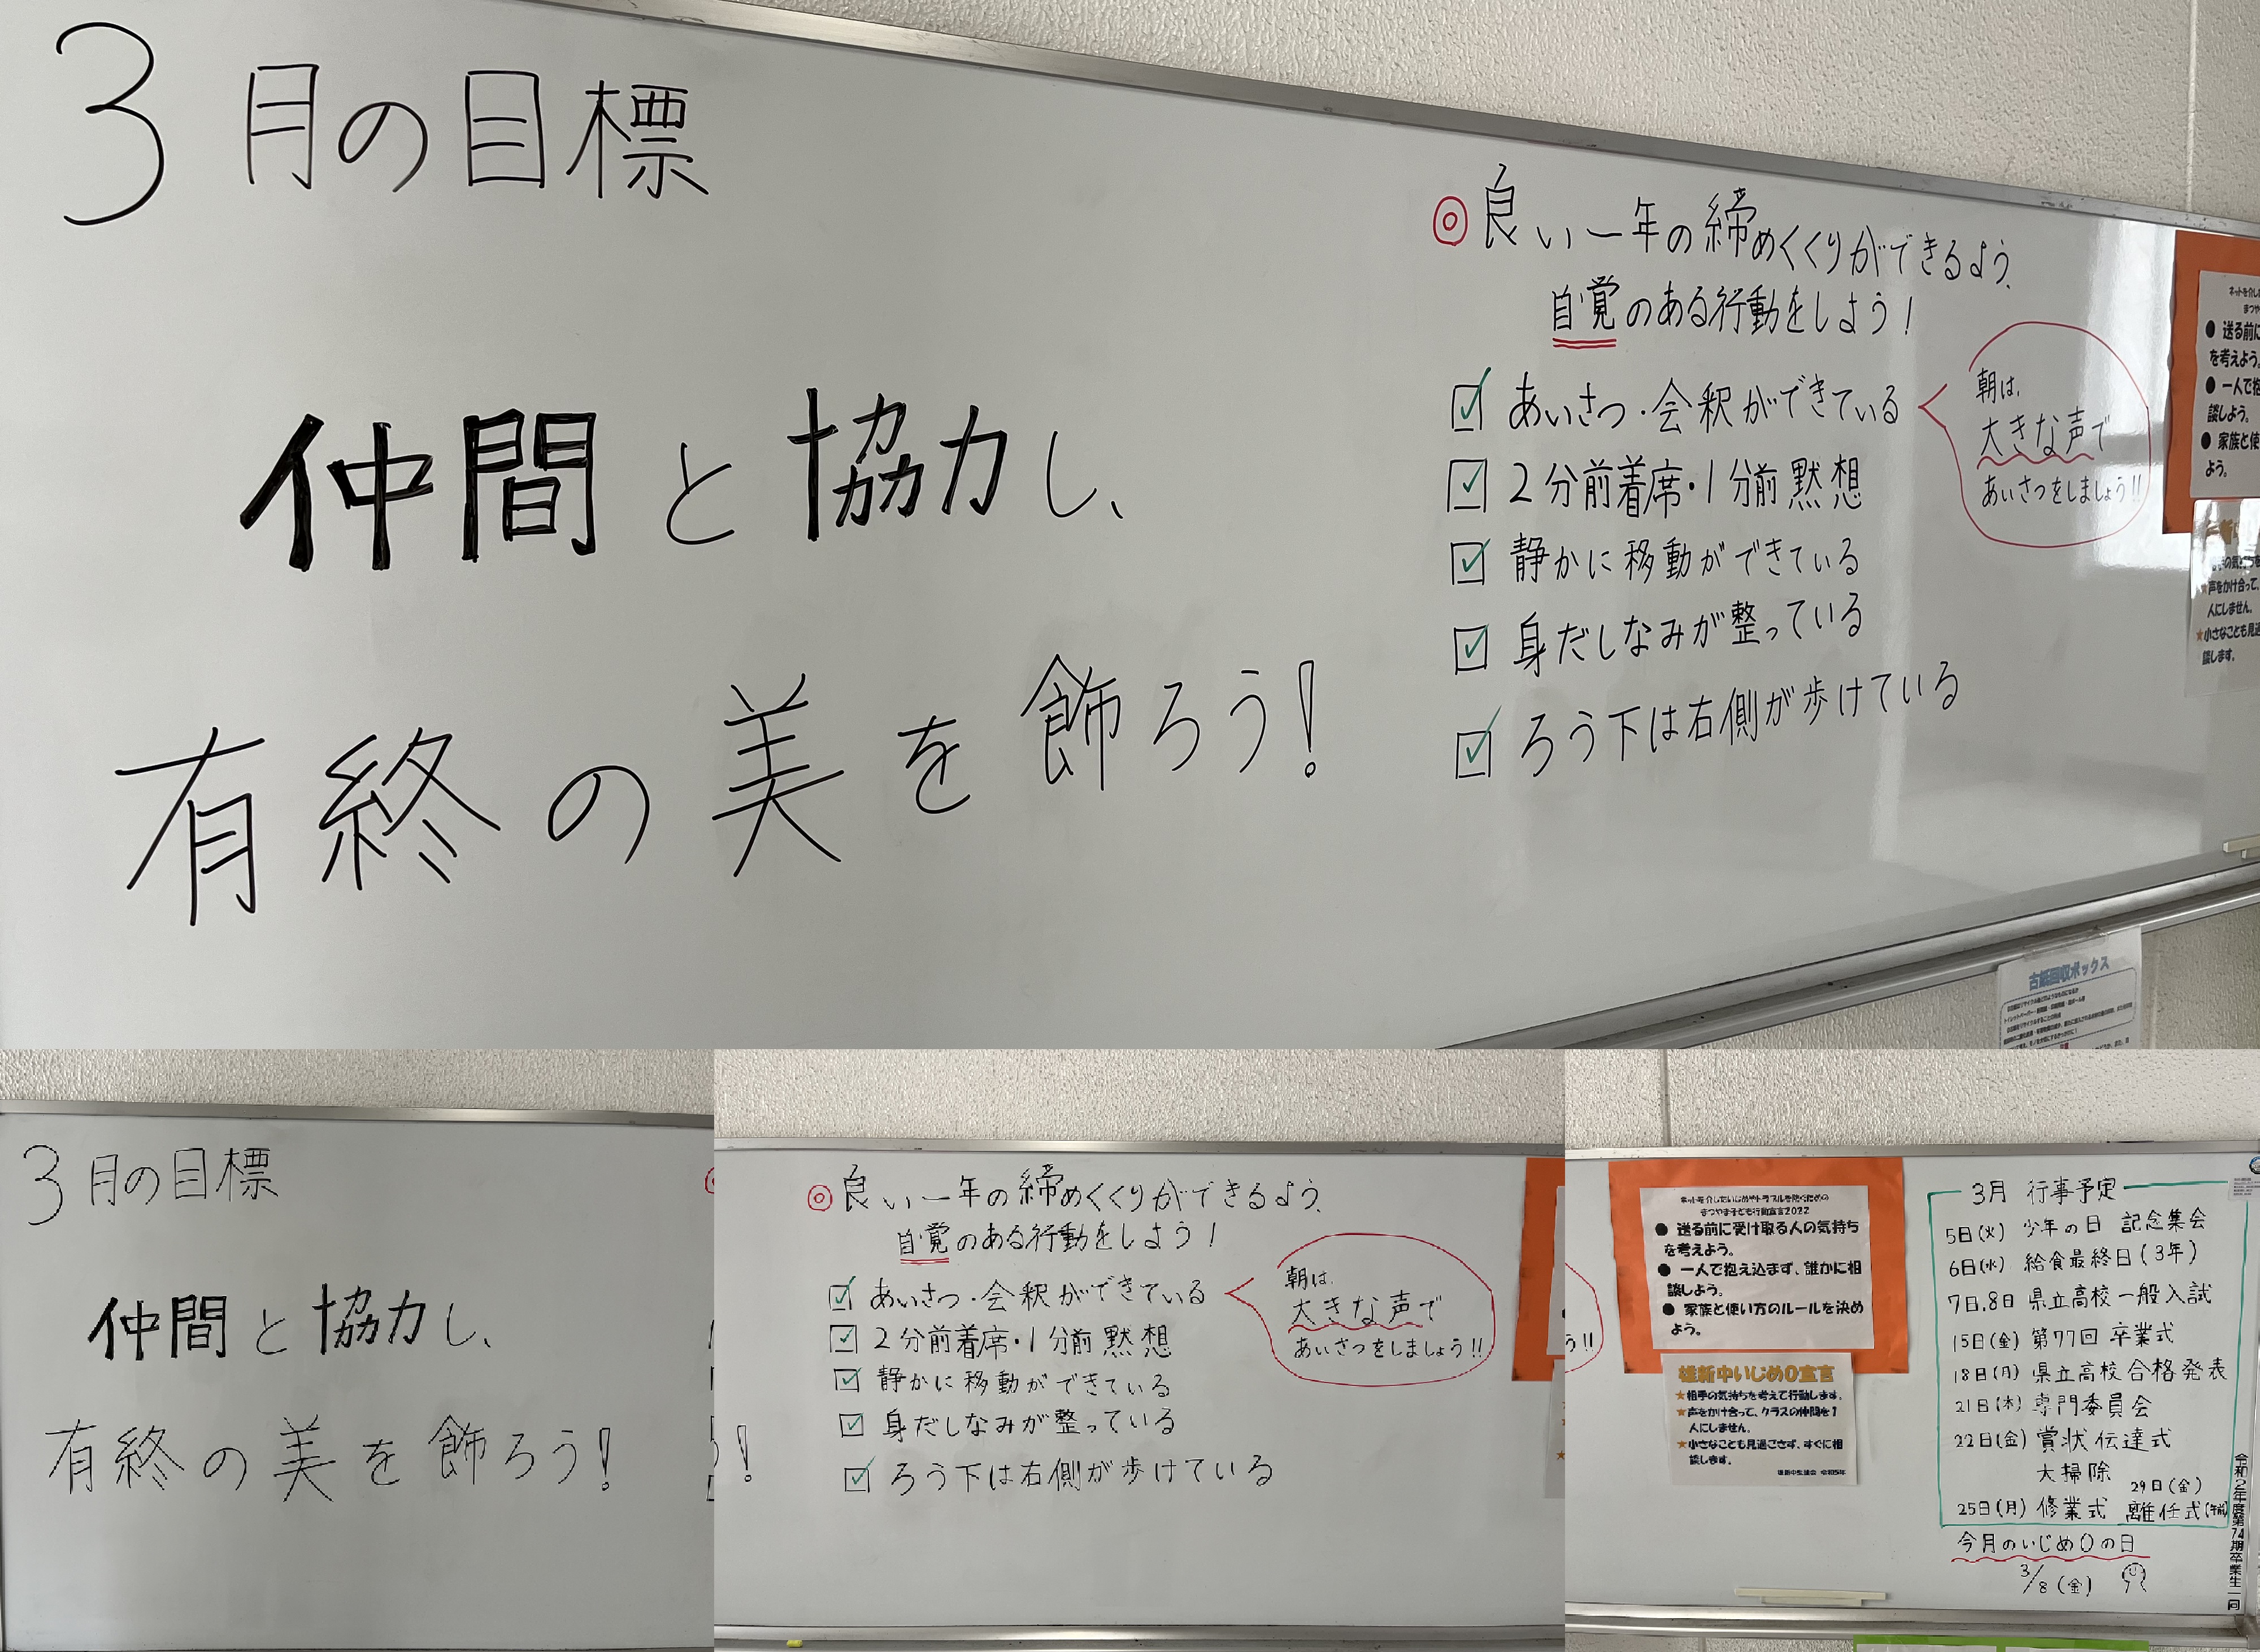 3月の目標
仲間と協力し、
有終の美を飾ろう!
◎良い一年の締めくくりができるよう、
自覚のある行動をしよう!
☑あいさつ・会釈ができている
☑2分前着席・1分前黙想
☑静かに移動ができている
☑身だしなみが整っている
☑ろう下は右側が歩けている
朝は、
大きな声で
あいさつをしましょう!!
ネットを介し
まつや
●送る前に
を考えよう。
●一人で抱
談しよう。
●家族と使
よう。
の気持ちを
★声をかけ合って、
人にしません。
★小さなことも見過
談します。
古紙回収ボックス
3月の目標
仲間と協力し、
有終の美を飾ろう!
う!
◎良い一年の締めくくりができるよう、
自覚のある行動をしよう!
☑あいさつ・会釈ができている
☑2分前着席・1分前黙想
☑静かに移動ができている
☑身だしなみが整っている
☑ろう下は右側が歩けている
朝は、
大きな声で
あいさつをしましょう!!
う!!
ネットを介したいじめやトラブルを防ぐための
まつやま子ども行動宣言2022
●送る前に受け取る人の気持ち
を考えよう。
●一人で抱え込まず、誰かに相
談しよう。
●家族と使い方のルールを決め
よう。
雄新中いじめ0宣言
★相手の気持ちを考えて行動します。
★声をかけ合って、クラスの仲間を1
人にしません。
★小さなことも見過ごさず、すぐに相
談します。
雄新中生徒会 令和5年
3月 行事予定
5日(火) 少年の日 記念集会
6日(水) 給食最終日(3年)
7日,8日 県立高校一般入試
15日(金) 第77回 卒業式
18日(月) 県立高校合格発表
21日(木) 専門委員会
22日(金) 賞状伝達式
大掃除
29日(金)
25日(月) 修業式 離任式(午前)
今月のいじめ0の日
3/8(金)
令和2年度第74期卒業生一同